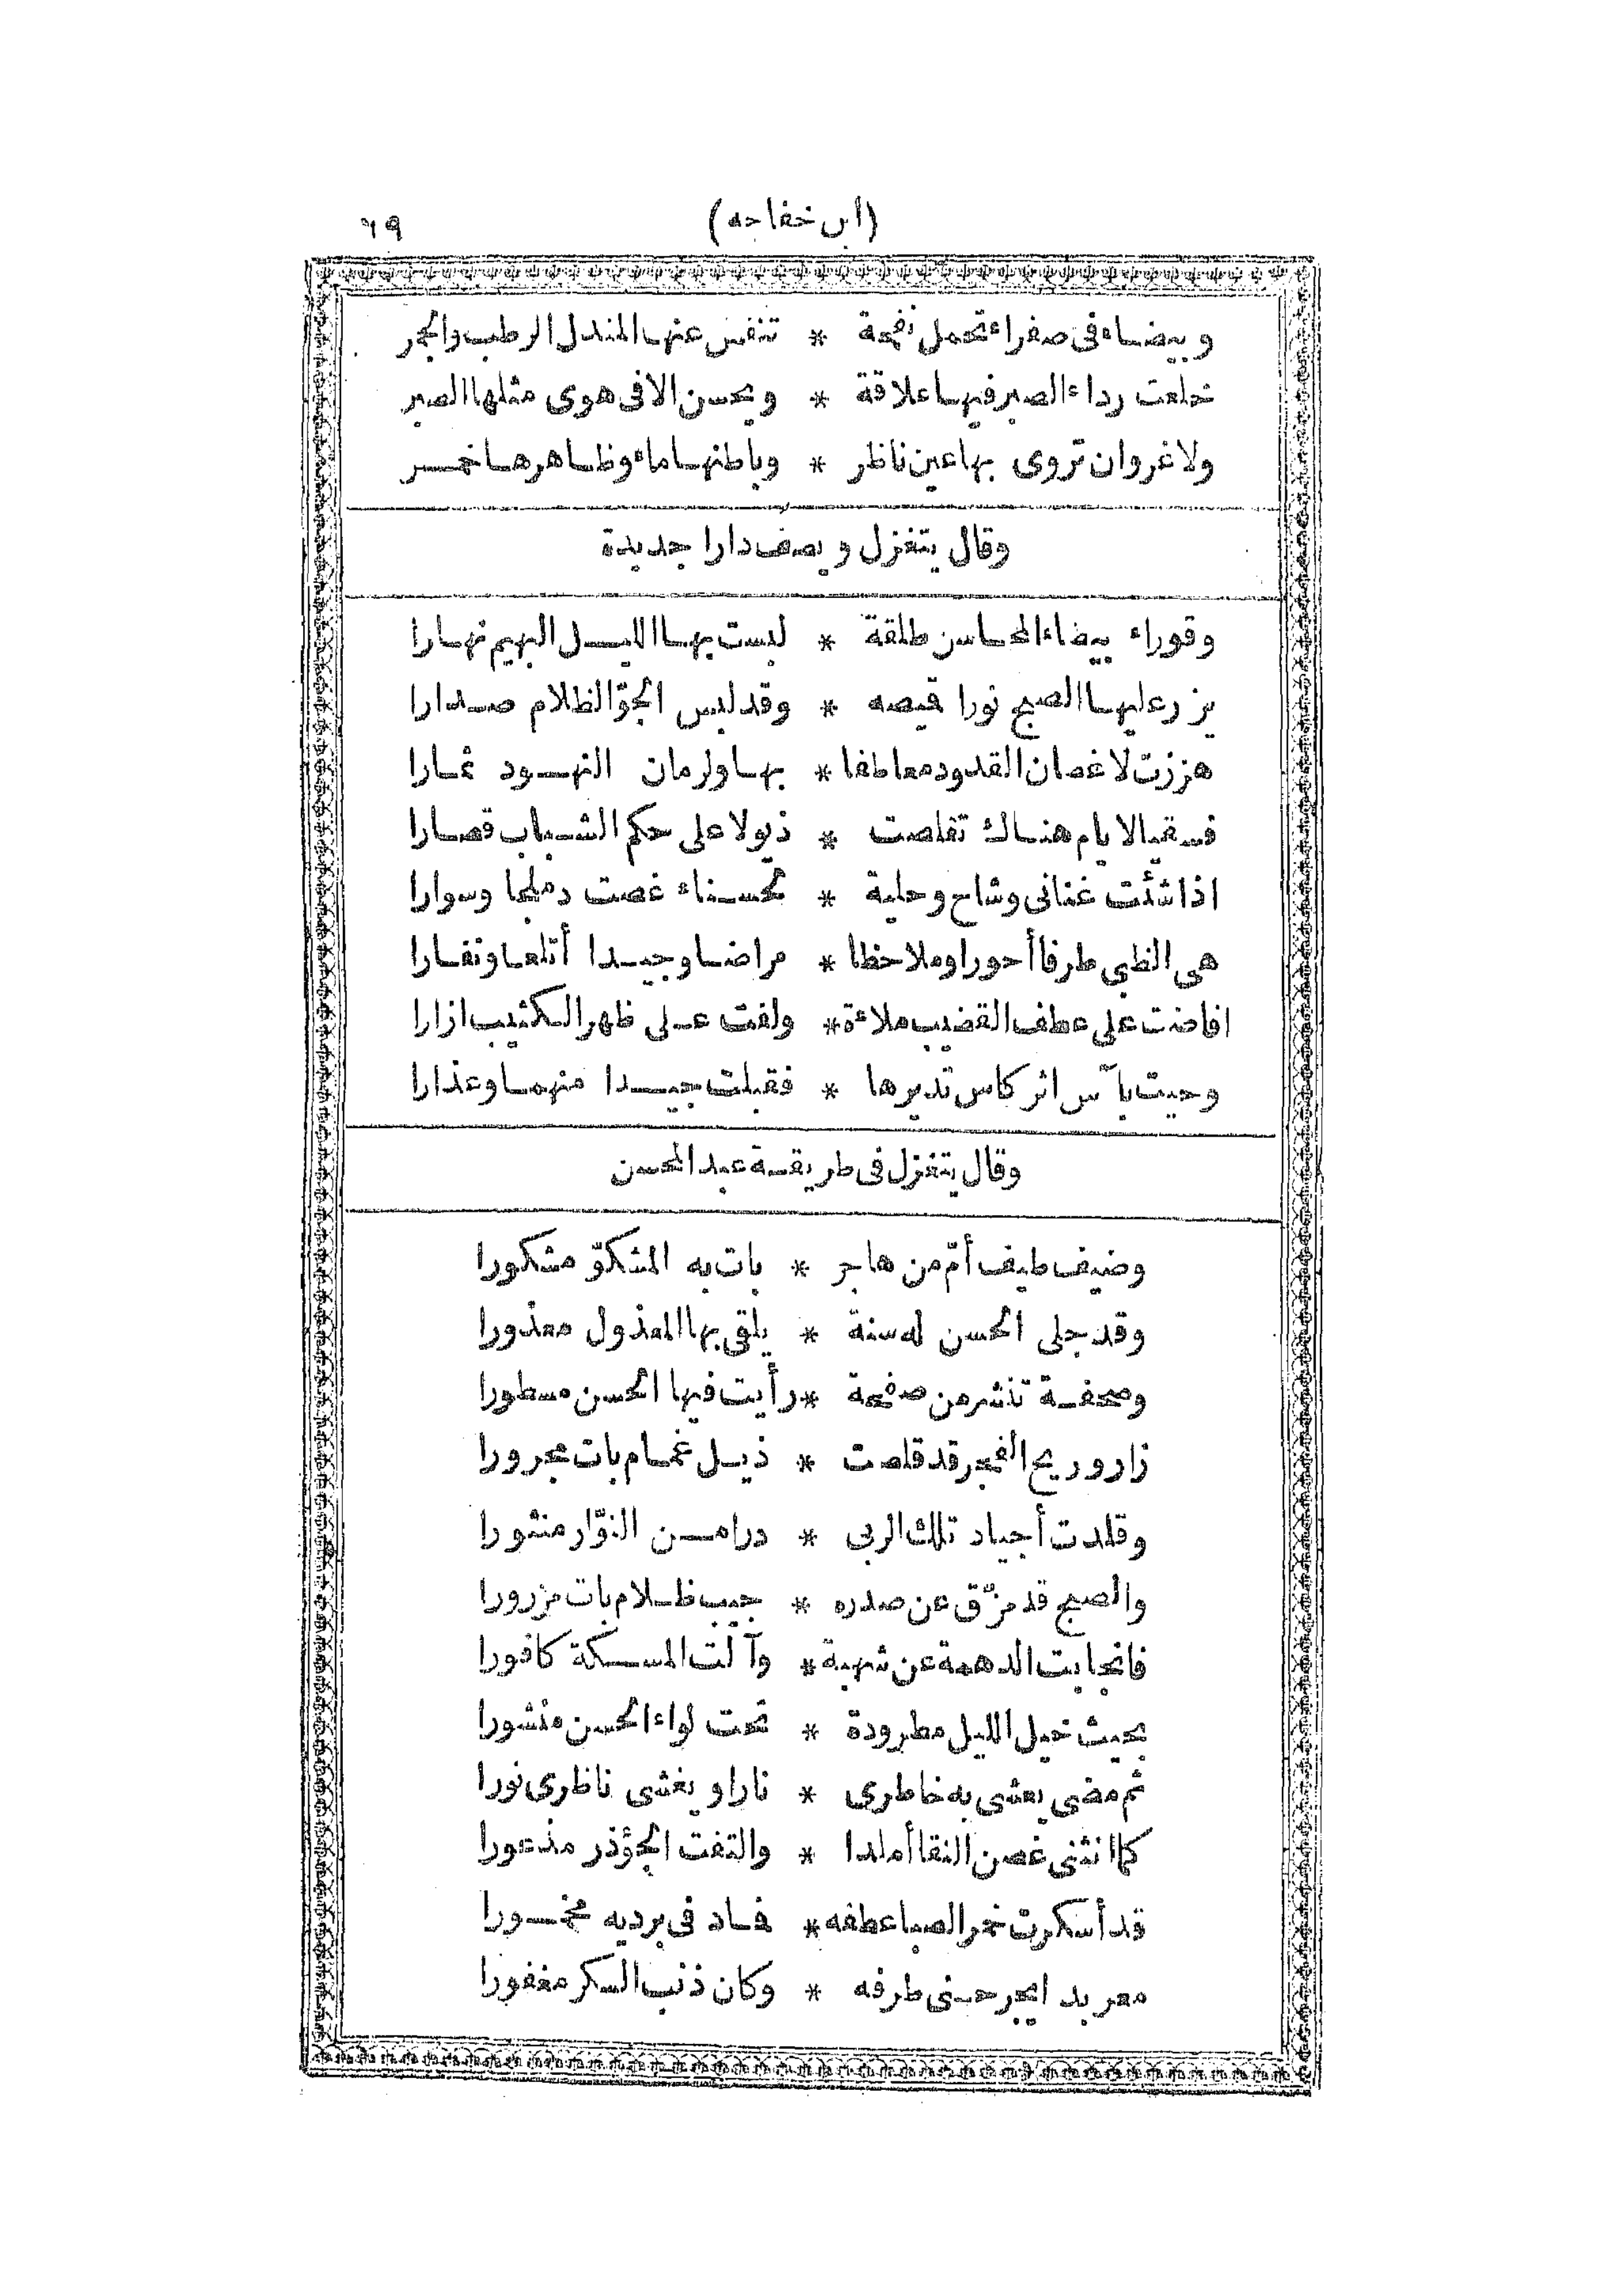 (ابن خفاجه) ٦٩
وبيضاء فى صفراء تحمل نفحة * تنفس عنها المندل الرطب والجمر
خلعت رداء الصبر فيها علاقة * ويحسن الا فى هوى مثلها الصبر
ولا غروان تروى بها عين ناظر * وباطنها ماء وظاهرها خمر
وقال يتغزل ويصف دارا جديدة
وقوراء بيضاء المحاسن طلقة * لبست بها الليل البهيم نهارا
يزر عليها الصبح نورا قيصه * وقد لبس الجوّ الظلام صدارا
هززت لاغصان القدود معاطفا * بها ولرمان النهود ثمارا
فسقيا لايام هناك تقلصت * ذيولا على حكم الشباب قصارا
اذا شئت غنانى وشاح وحلية * لحسناء غصت دملجا وسوارا
هى الظبى طرفا أحورا وملاحظا * مراضا وجيدا أتلعا ونفارا
افاضت على عطف القضيب ملاءة * ولفت على ظهر الكثيب ازارا
وحيت بآس اثر كاس تديرها * فقبلت جيدا منهما وعذارا
وقال يتغزل فى طريقة عبد المحسن
وضيف طيف أمّ من هاجر * بات به المشكوّ مشكورا
وقد جلى الحسن له سنة * يلقى بها المعذول معذورا
وصحفة تنشر من صفحة * رأيت فيها الحسن مسطورا
زار وريح الفجر قد قلصت * ذيل غمام بات مجرورا
وقلدت أجياد تلك الربى * درا من النوّار منثورا
والصبح قد مزّق عن صدره * جيب ظلام بات مزرورا
فانجابت الدهمة عن شهبة * وآلت المسكة كافورا
بحيث خيل الليل مطرودة * تحت لواء الحسن منشورا
ثم مضى يعشى به خاطرى * نارا ويغشى ناظرى نورا
كما انثنى غصن النقا أملدا * والتفت الجؤذر مذعورا
قد أسكرت خمر الصبا عطفه * فماد فى برديه مخمورا
معربدا يجرحنى طرفه * وكان ذنب السكر مغفورا